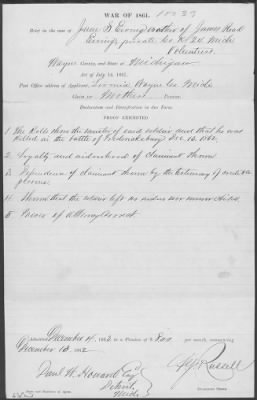 WAR OF 1861.
Brief in the case of Jane E. Ewing mother of James
Ewing, private Co. 24 Mich
Volunteers
Wayne County, and State of Michigan
Act of July 14, 1862.
Post Office address of Applicant, Livonia, Wayne Co. Mich
Claim for Mother's Pension.
Declaration and Identification in due Form.
PROOF EXHIBITED
1 The Rolls show the muster of said soldier and that he was
killed in the battle of Fredericksburg Dec. 13. 1862.
2 Loyalty and widowhood of claimant shown
3 Dependence of claimant shown by the testimony of credible
4 Shown that the soldier left no widow nor minor child.
5 Power of attorney correct
Admitted December 1862 to a Pension of $8.00 per month, commencing
December 13. 1862
Paul W. Howard Esq
Detroit
Mich
Russell
Examining Clerk.